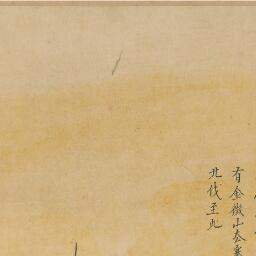 有金微山太
北伐至此